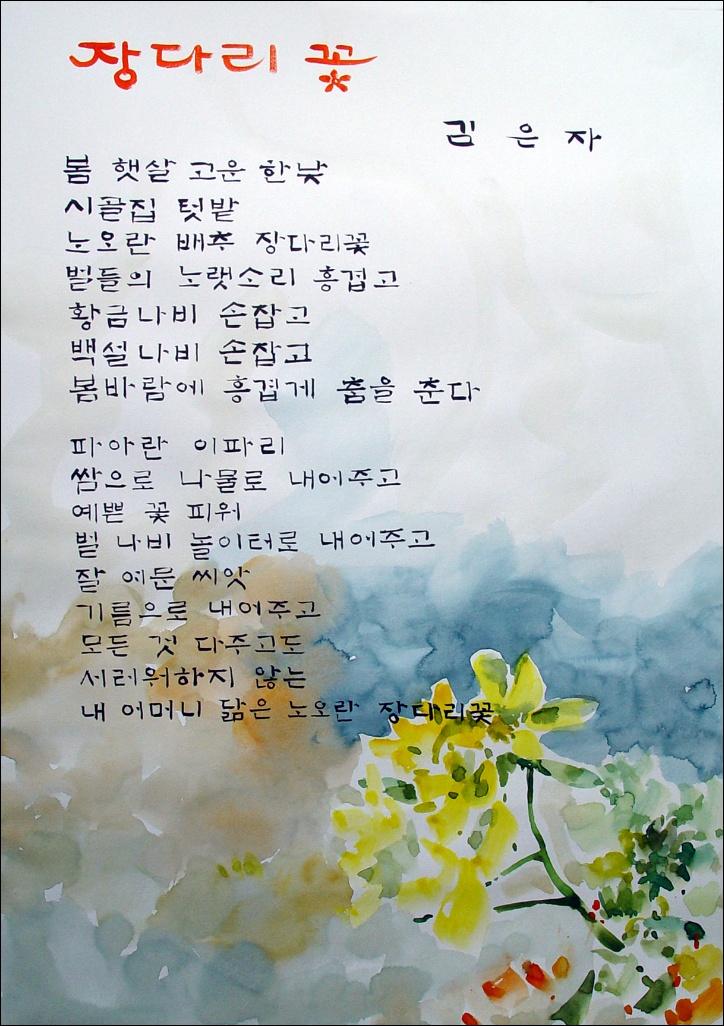 장다리 꽃
김 은 자
봄 햇살 고운 한낮
시골집 텃밭
노오란 배추 장다리꽃
벌들의 노랫소리 흥겹고
황금나비 손잡고
백설나비 손잡고
봄바람에 흥겹게 춤을 춘다
파아란 이파리
쌈으로 나물로 내어주고
예쁜 꽃 피워
벌 나비 놀이터로 내어주고
잘 여문 씨앗
기름으로 내어주고
모든 것 다주고도
서러워하지 않는
내 어머니 닮은 노오란 장다리꽃